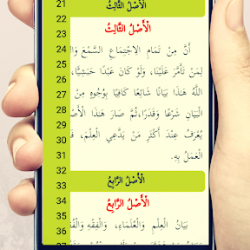 21 الْأَصْلُ الثَّالِثُ
22
23 الْأَصْلُ الثَّالِثُ
24
25 أَنَّ مِنْ تَمَامِ الِاجْتِمَاعِ السَّمْعَ
26 لِمَنْ تَأَمَّرَ عَلَيْنَا، وَلَوْ كَانَ عَبْدًا حَبَشِيًّا،
27 اللَّهُ هَذَا بَيَانًا شَائِعًا كَافِيًا بِوُجُوهٍ مِنْ
28 الْبَيَانِ شَرْعًا وَقَدَرًا، ثُمَّ صَارَ هَذَا
29
30 يُعْرَفُ عِنْدَ أَكْثَرِ مَنْ يَدَّعِي الْعِلْمَ،
31 الْعَمَلُ بِهِ.
32
33 الْأَصْلُ الرَّابِعُ
34
35 الْأَصْلُ الرَّابِعُ
36
37 بَيَانُ الْعِلْمِ وَالْعُلَمَاءِ، وَالْفِقْهِ